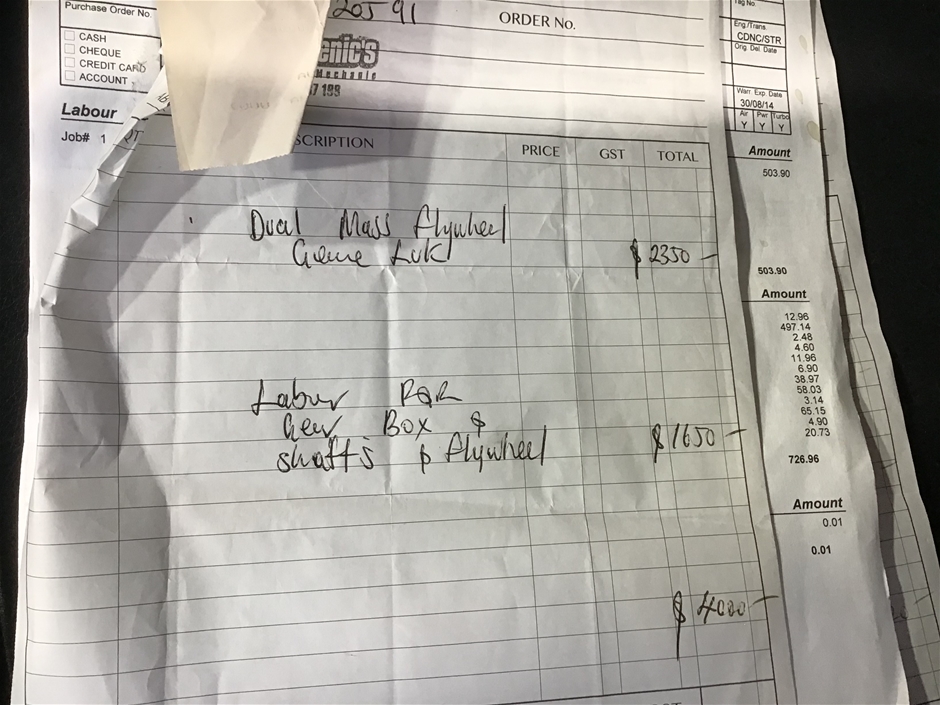 Purchase Order No.
20591
ORDER No.
CASH
CHEQUE
CREDIT CARD
ACCOUNT
enic's
Mechanic
7 199
Tag No.
Eng./Trans.
CDNC/STR
Orig. Del. Date
Warr. Exp. Date
30/08/14
Air Pwr Turbo
Y Y Y
Labour
Job# 1
SCRIPTION PRICE GST TOTAL
Amount
503.90
Dual Mass flywheel
Luk $2350 —
503.90
Amount
12.96
497.14
2.48
4.60
11.96
6.90
38.97
58.03
3.14
65.15
4.90
20.73
726.96
Labour R&R
Gear Box &
shafts & flywheel $1650 —
Amount
0.01
0.01
$4000 —